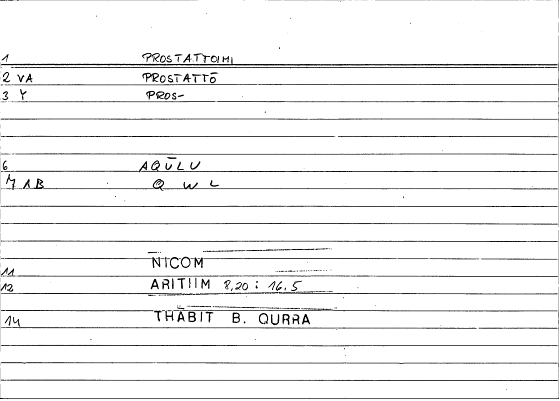 1 PROSTATTOIMI
2 VA PROSTATTŌ
3 Y PROS-
6 AQŪLU
7 AB Q W L
11 NICOM
12 ARITIIM 8,20 : 16.5
14 THĀBIT B. QURRA